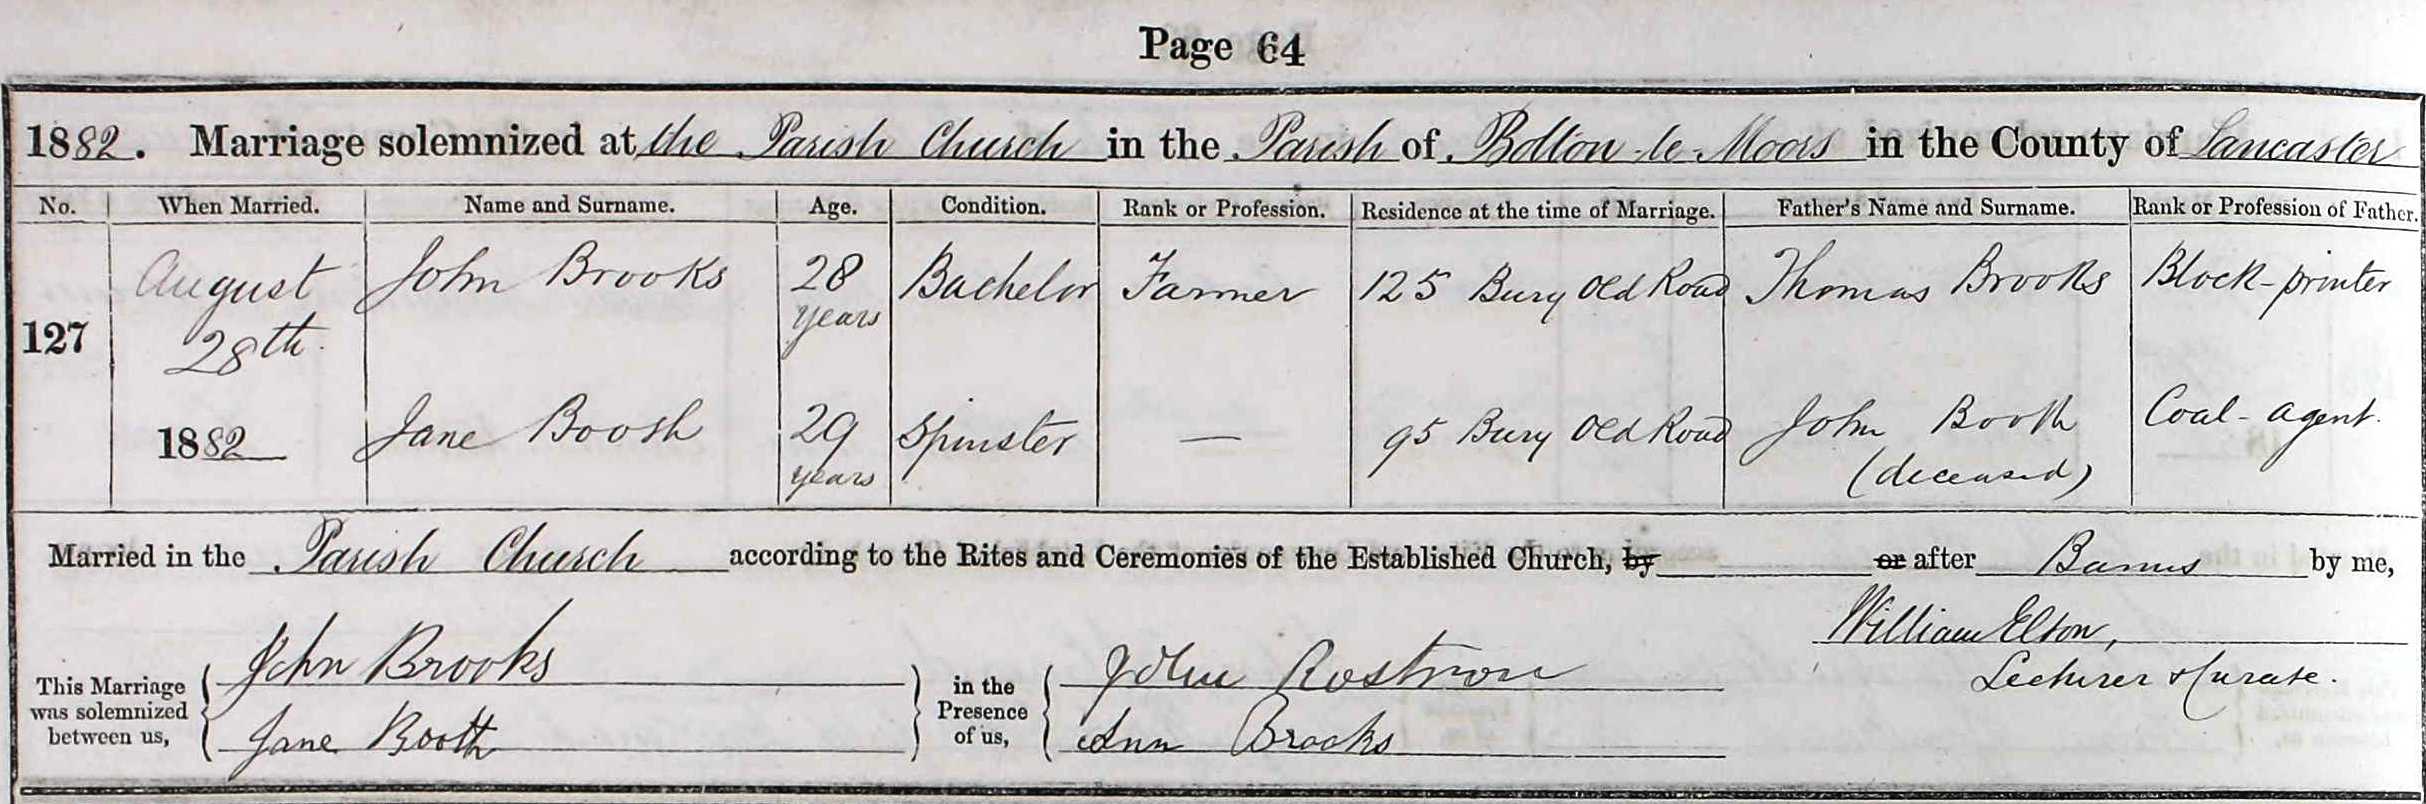 Page 64
1882. Marriage solemnized at the Parish Church in the Parish of Bolton-le-Moors in the County of Lancaster
No. When Married. Name and Surname. Age. Condition. Rank or Profession. Residence at the time of Marriage. Father's Name and Surname. Rank or Profession of Father.
127 August 28th 1882
John Brooks 28 years Bachelor Farmer 125 Bury Old Road Thomas Brooks Block-printer
Jane Booth 29 years Spinster — 95 Bury Old Road John Booth (deceased) Coal-agent.
Married in the Parish Church according to the Rites and Ceremonies of the Established Church, by or after Banns by me,
William Elton,
Lecturer & Curate.
This Marriage was solemnized between us,
John Brooks
Jane Booth
in the Presence of us,
John Rostron
Ann Brooks